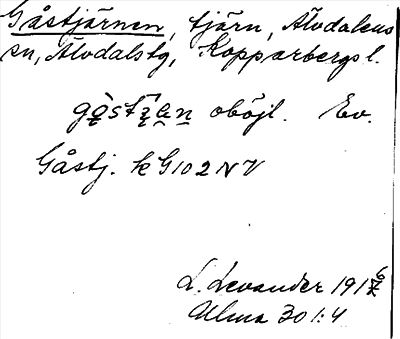 Gåstjärnen, tjärn, Älvdalens
sn, Älvdalstg, Kopparbergs l.
oböjl. Ev.
Gåstj. k G102NV
L. Levander 1916
Ulma 301:4